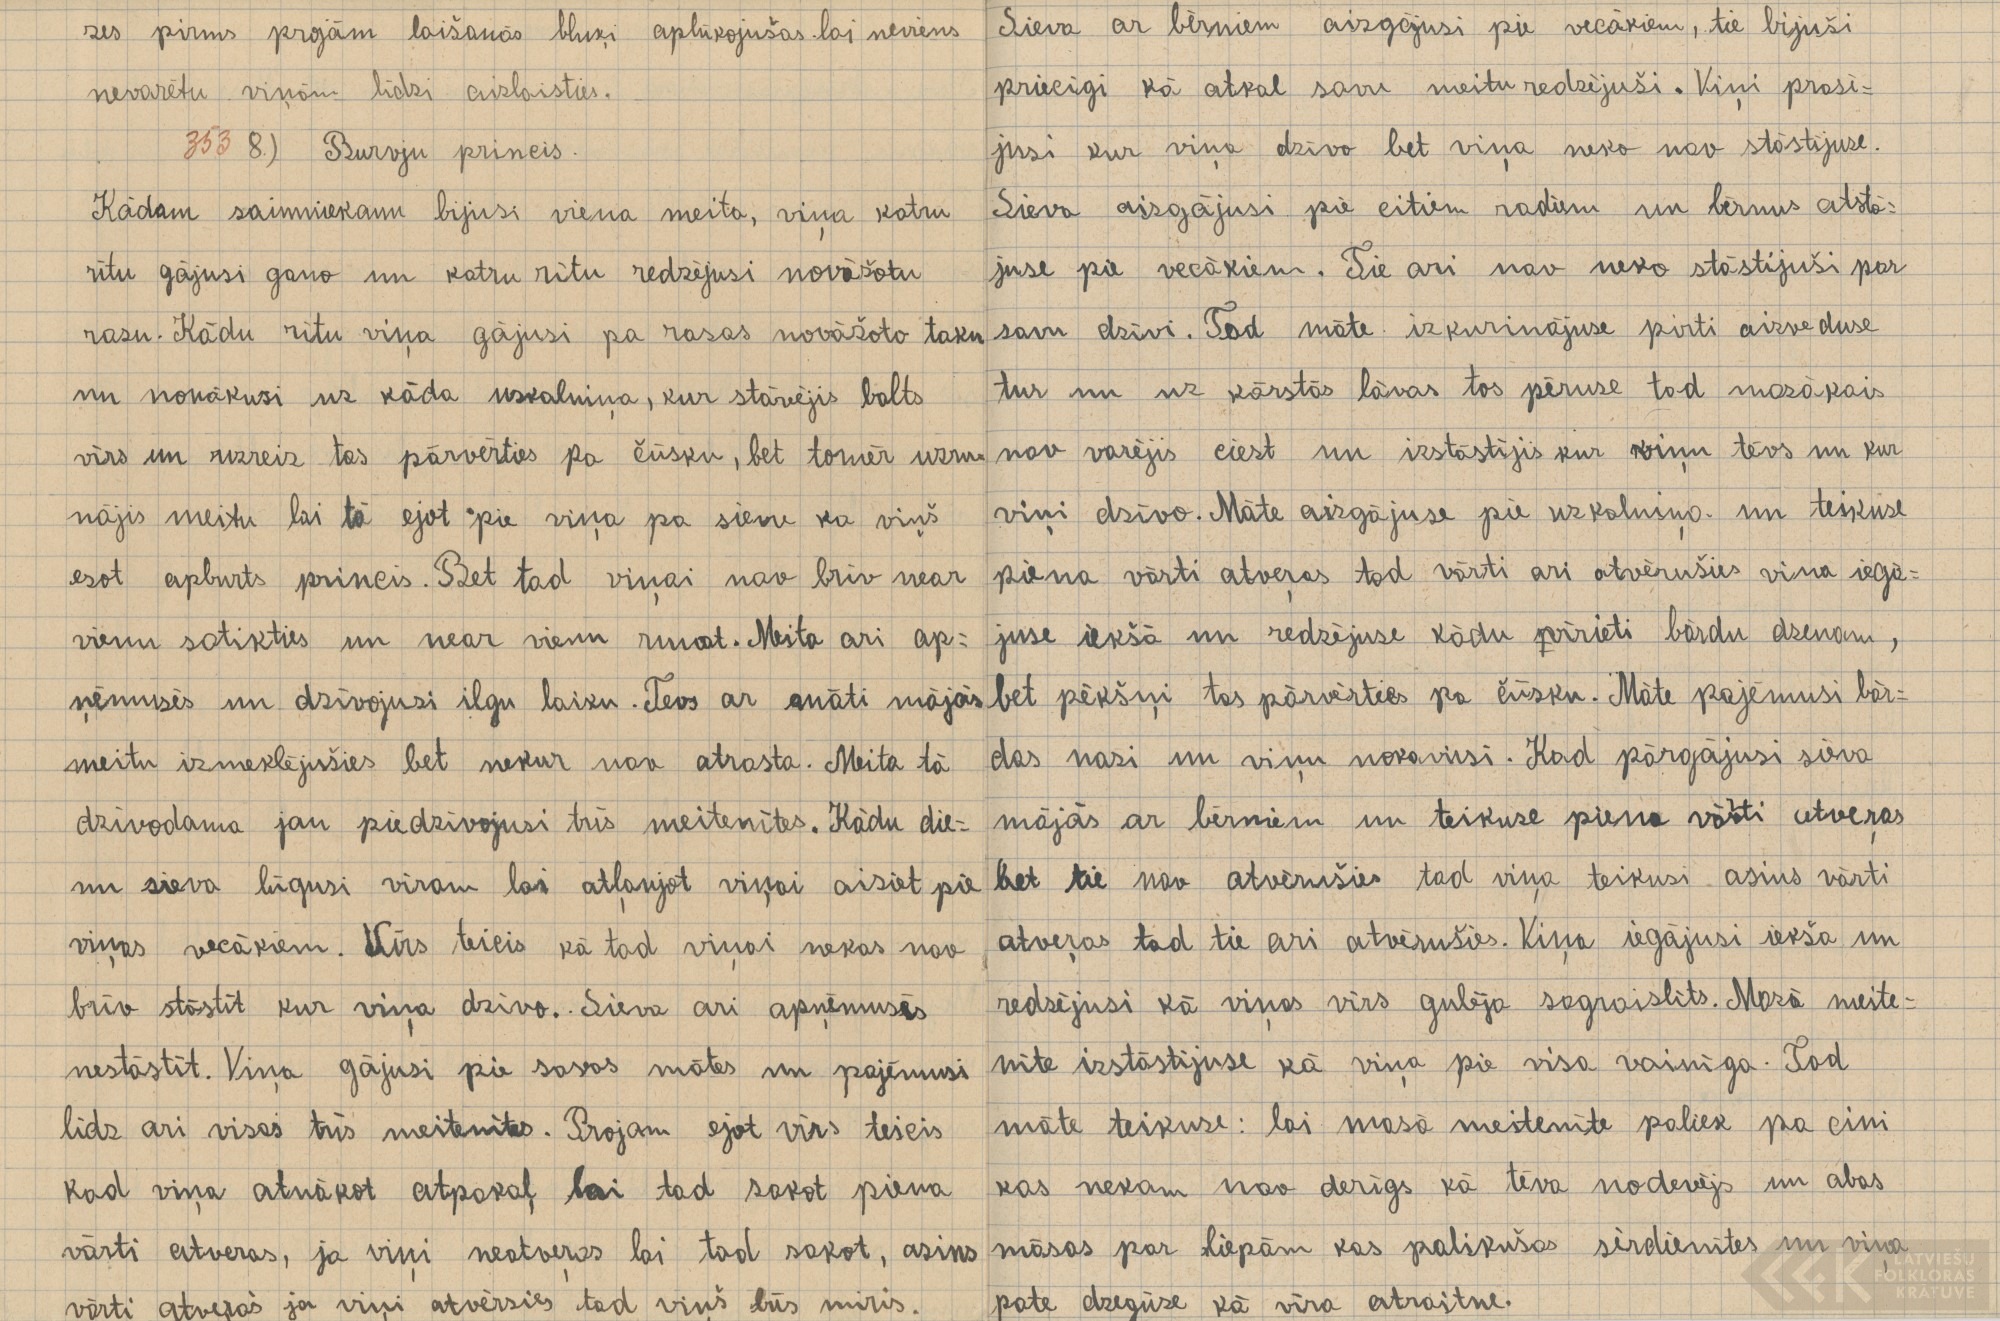 zes pirms prgām laišanās bluķi aplūkojušas lai neviens
nevarētu viņām līdzi aizlaisties.
353 8.) Burvju princis.
Kādam saimniekam bijusi viena meita, viņa katru
rītu gājusi gano un katru rītu redzējusi novāžotu
rasu. Kādu rītu viņa gājusi pa rasas novāžoto taku
un nonākusi uz kāda uzkalniņa, kur stāvējis balts
vīrs un uzreiz tas pārvērties pa čūsku, bet tomēr uzru-
nājis meitu lai tā ejot pie viņa pa sievu ka viņš
esot apburts princis. Bet tad viņai nav brīv near
vienu satikties un near vienu runat. Meita ari ap=
ņēmusēs un dzīvojusi ilgu laiku. Tevs ar māti mājās
meitu izmeklējušies bet nekur nav atrasta. Meita tā
dzīvodama jau piedzīvojusi trīs meitenītes. Kādu die=
nu sieva lūgusi vīram lai atļaujot viņai aiziet pie
viņas vecākiem. Vīrs teicis kā tad viņai nekas nav
brīv stāstīt kur viņa dzīvo. Sieva ari apņēmusēs
nestāstīt. Viņa gājusi pie savas mātes un paņēmusi
līdz ari visas trīs meitenītes. Projam ejot vīrs teicis
kad viņa atnākot atpakaļ lai tad sakot piena
vārti atveras, ja viņi neatveŗas lai tad sakot, asins
vārti atveŗas ja viņi atvērsies tad viņš būs miris.
Sieva ar bērniem aizgājusi pie vecākiem, tie bijuši
priecīgi kā atkal savu meitu redzējuši. Viņi prasī=
jusi kur viņa dzīvo bet viņa neko nav stāstījuse.
Sieva aizgājusi pie citiem radiem un bērnus atstā=
juse pie vecākiem. Tie ari nav neko stāstījuši par
savu dzīvi. Tad māte izkurinājuse pirti aizveduse
tur un uz kārstās lāvas tos pēruse tad mazākais
nav varējis ciest un izstāstījis kur viņu tēvs un kur
viņi dzīvo. Māte aizgājuse pie uzkalniņa un teikuse
piena vārti atveŗas tad vārti ari atvērušies viņa iegā=
juse iekšā un redzējuse kādu vīrieti bārdu dzenam,
bet pēkšņi tas pārvērties pa čūsku. Māte paņēmusi bār=
das nasi un viņu nokavusi. Kad pārgājusi sieva
mājās ar bērniem un teikuse piena vārti atveŗas
bet tie nav atvērušies tad viņa teikusi asins vārti
atveŗas tad tie ari atvērušies. Viņa iegājusi iekša un
redzējusi kā viņas vīrs gulēja sagraislīts. Mazā meite=
nīte izstāstījuse kā viņa pie visa vainīga. Tad
māte teikuse: lai mazā meitenīte paliek pa cini
kas nekam nav derīgs kā tēva nodevējs un abas
māsas par liepām kas palikušas sērdienītes un viņa
pate dzegūse kā vīra atraitne.
LATVIEŠU
FOLKLORAS
KRĀTUVE